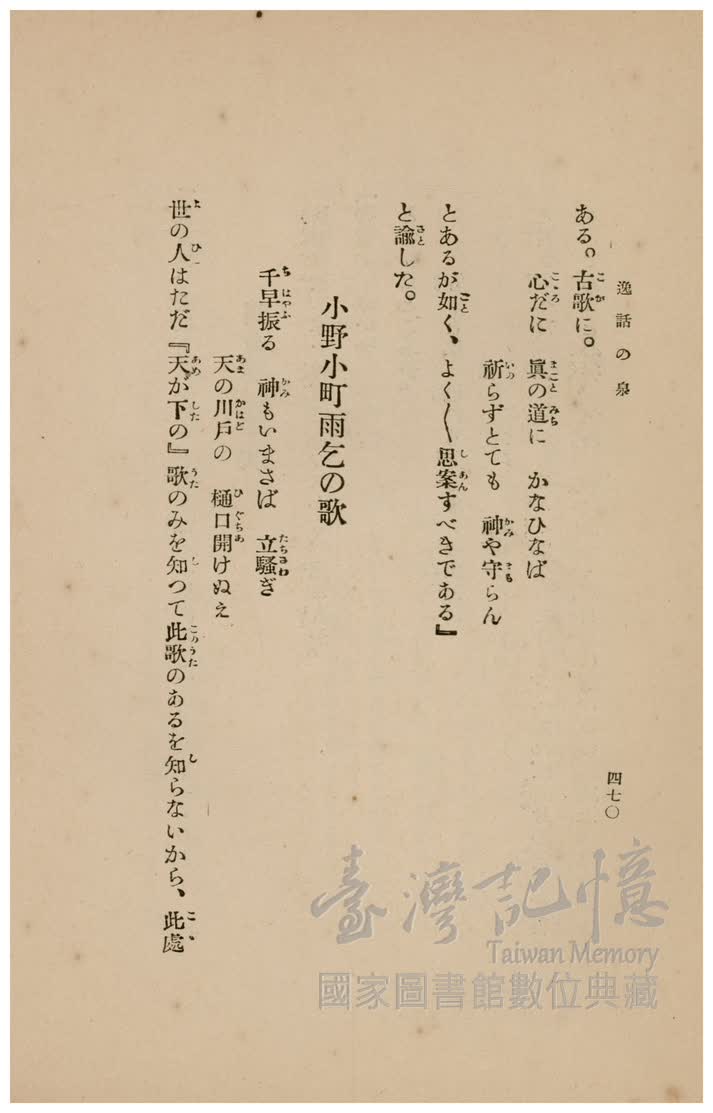 逸話の泉
四七〇
ある。古歌に。
心だに　眞の道に　かなひなば
祈らずとても　神や守らん
とあるが如く、よく〱思案すべきである』
と諭した。
小野小町雨乞の歌
千早振る　神もいまさば　立騷ぎ
天の川戸の　樋口開けぬえ
世の人はただ『天が下の』歌のみを知つて此歌のあるを知らないから、此處
臺灣記憶
Taiwan Memory
國家圖書館數位典藏